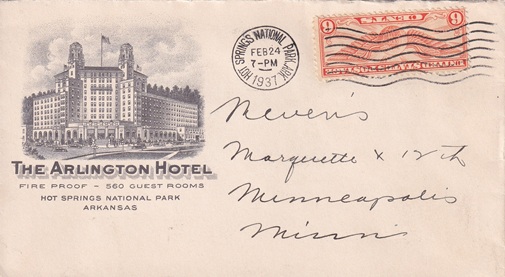 THE ARLINGTON HOTEL
FIRE PROOF – 560 GUEST ROOMS
HOT SPRINGS NATIONAL PARK
ARKANSAS
HOT SPRINGS NATIONAL PARK, ARK
FEB 24
7-PM
1937
9 CENTS 9
Marquette & 12th
Minneapolis
Minni